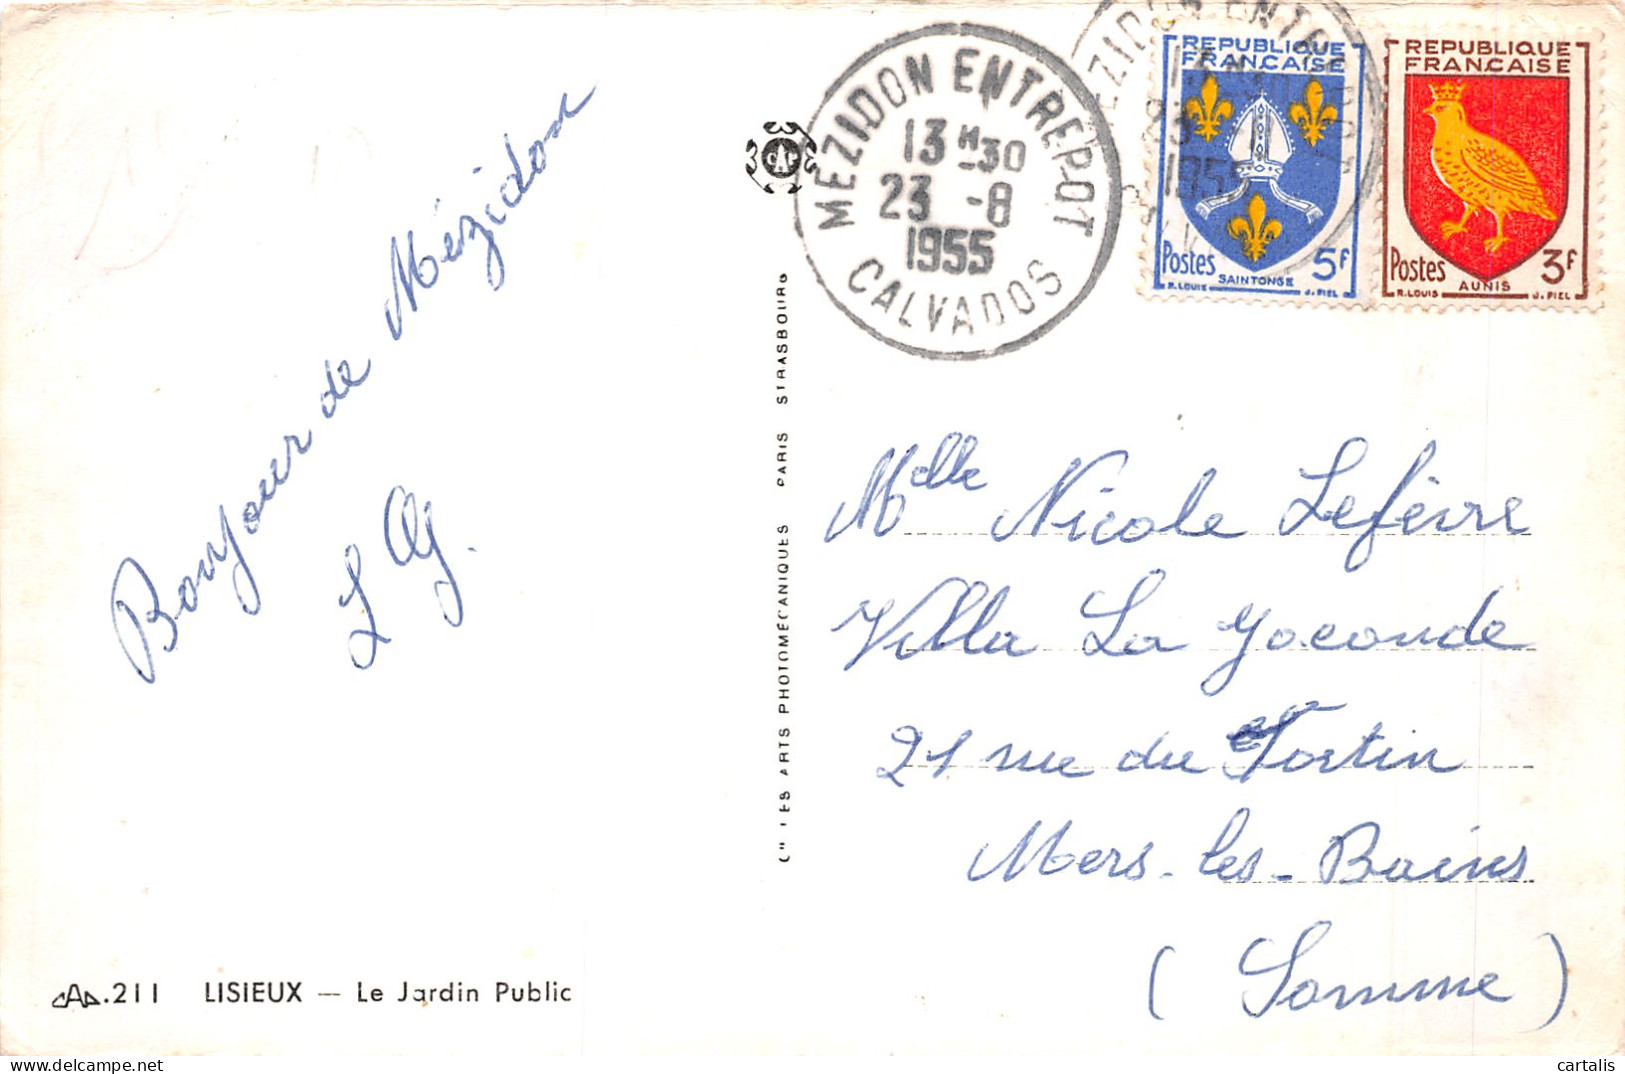 Bonjour de Mézidon
LISIEUX — Le Jardin Public
.211
CIE LES ARTS PHOTOMÉCANIQUES PARIS STRASBOURG
MEZIDON ENTREPOT
13 H 30
23 -8
1955
CALVADOS
REPUBLIQUE
FRANÇAISE
Postes 5F
SAINTONGE
R.LOUIS J.PIEL
REPUBLIQUE
FRANÇAISE
Postes 3F
AUNIS
R.LOUIS J.PIEL
Melle Nicole Lefèvre
Villa La Joconde
21 rue du Tortin
Mers-les-Bains
(Somme)
cartalis